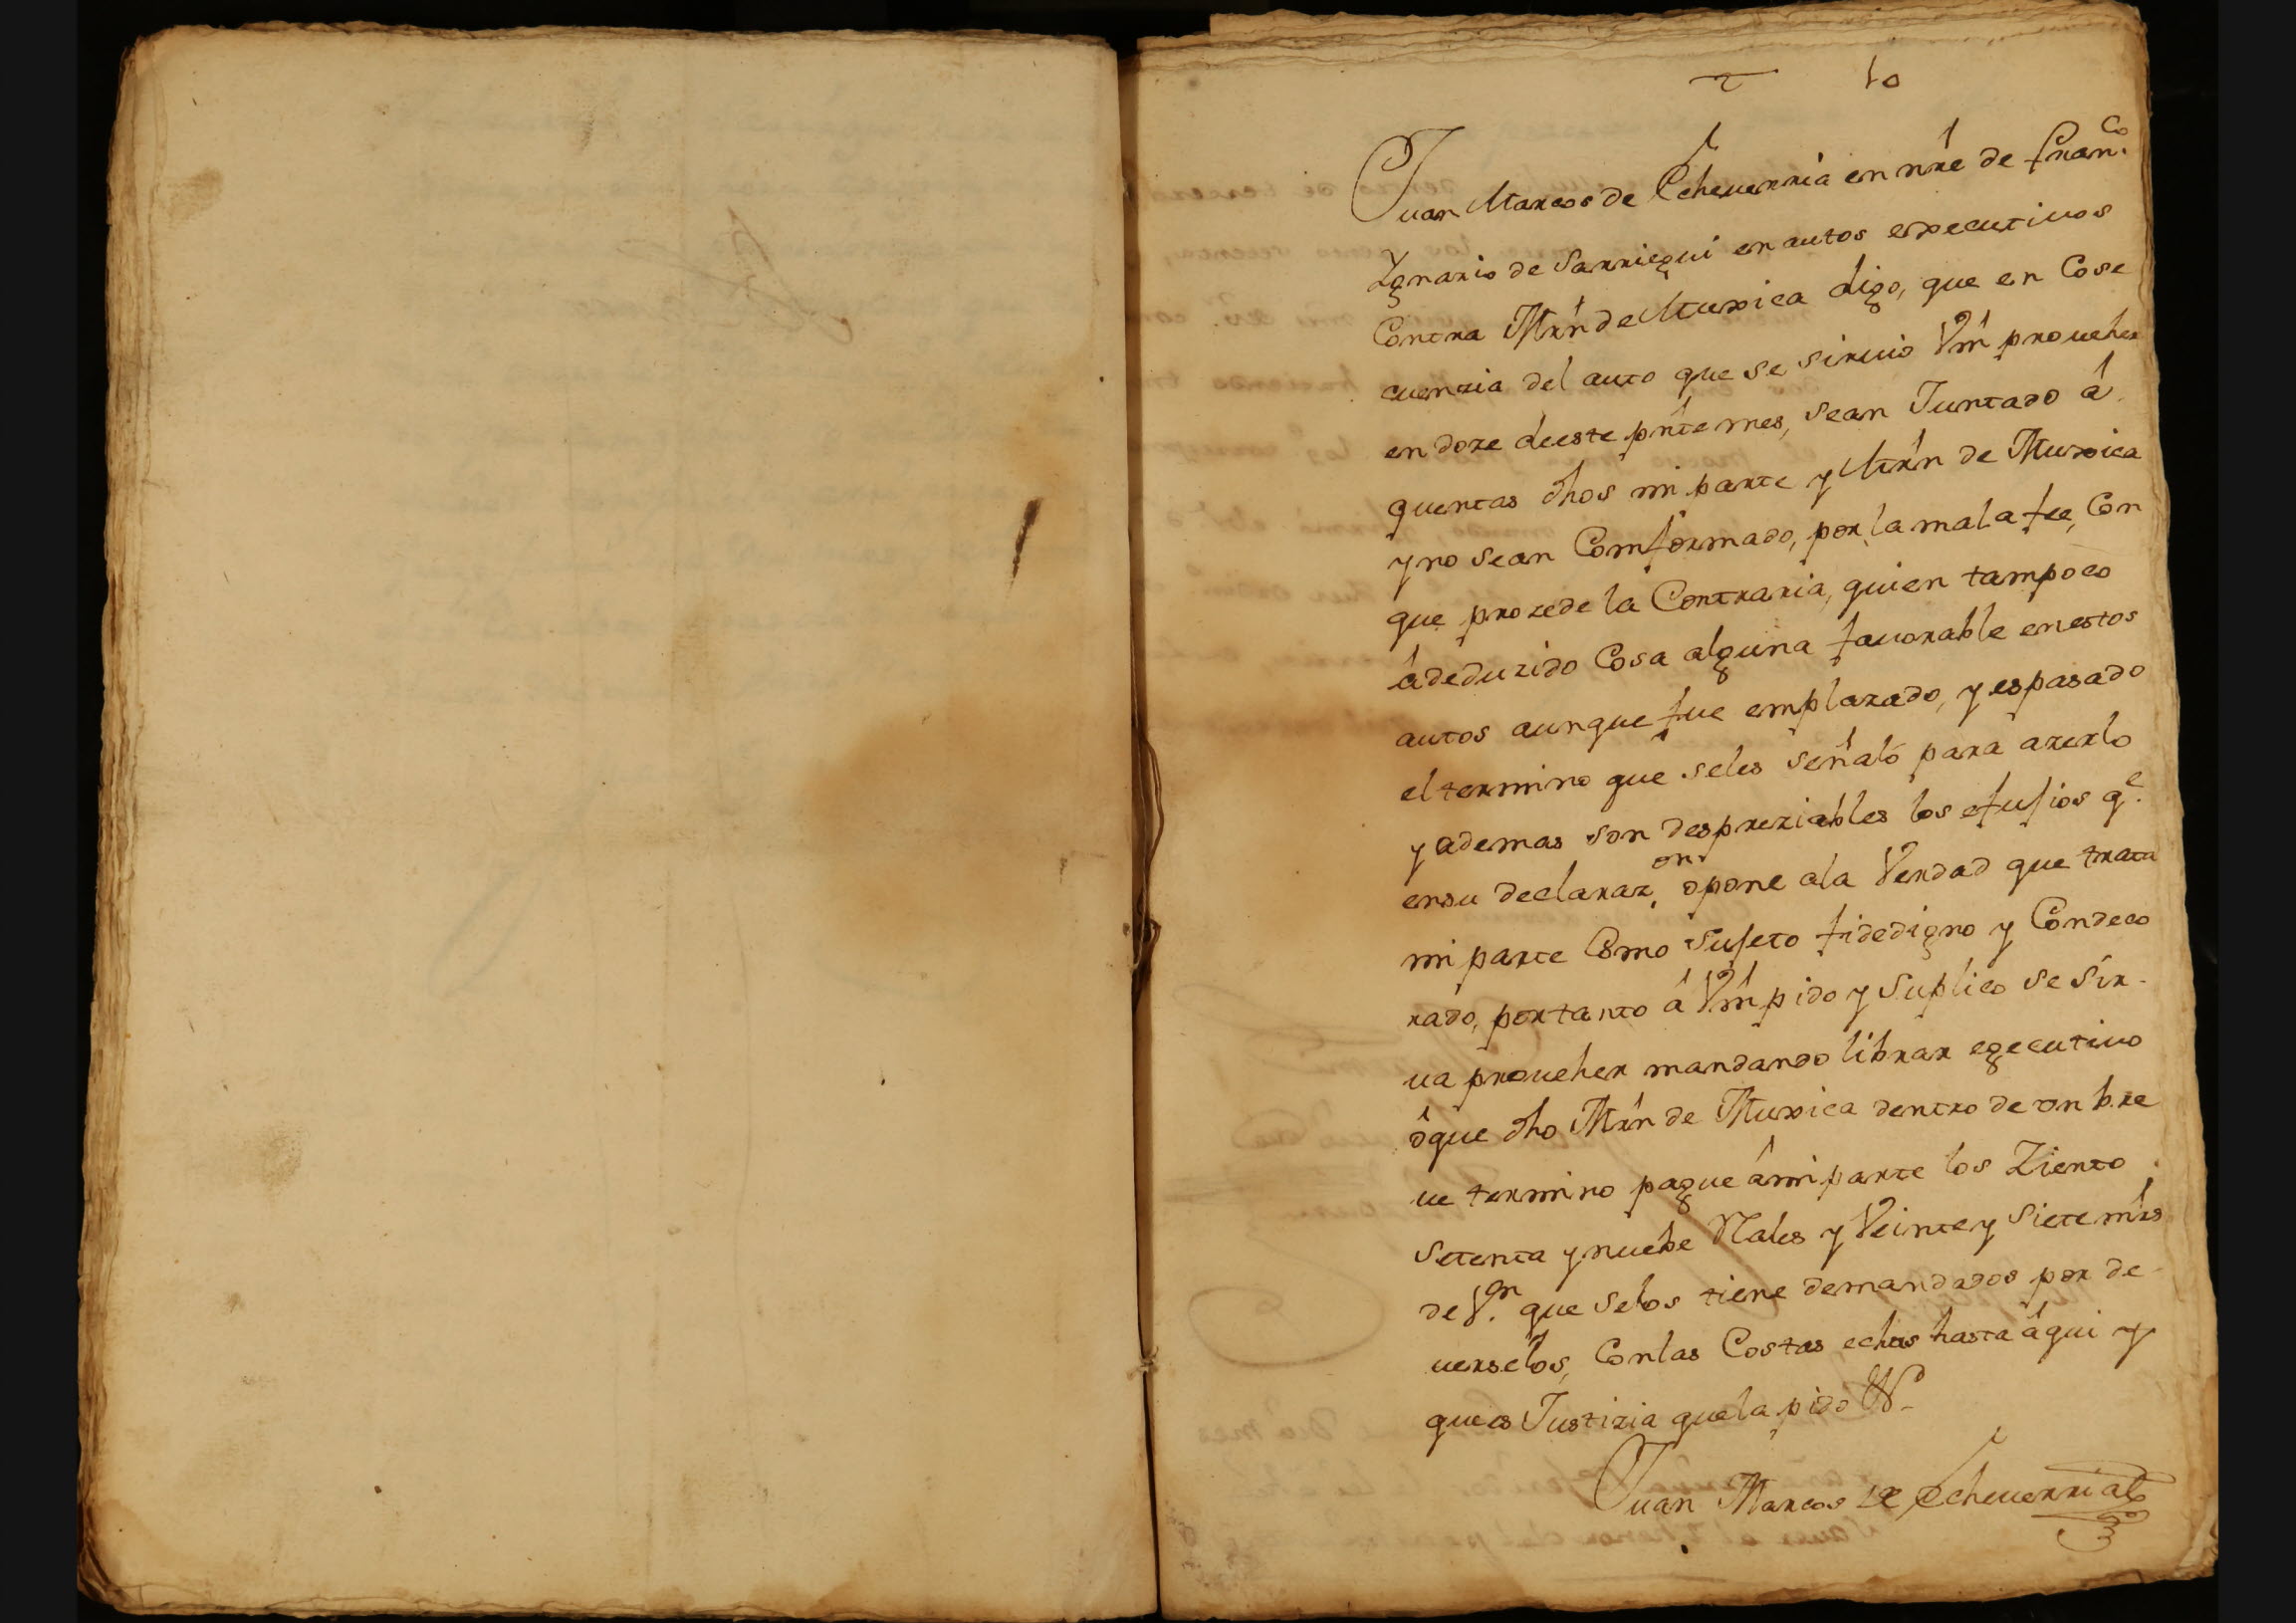 10
Juan Marcos de Echeverria en nre de fran.co
Ygnazio de Sarriegui en autos executivos
Contra Mrn de Muxica digo, que en Cose
cuenzia del auto que se siruio Vm proueher
en doze deeste pnte mes, sean Juntado á
quentas dhos mi parte y Mrn de Muxica
y no sean Comformado, por la mala fee, Con
que prozede la Contraria, quien tampoco
á deduzido Cosa alguna fauorable en estos
autos aunque fue emplazado, y es pasado
el termino que seles señaló para azerlo
y ademas son despreziables los efujios q.e
ensu declaraz.on opone ala Verdad que trata
mi parte Como Sujeto fidedigno y Condeco
rado, portanto á Vm pido y Suplico se Sir-
ua proueher mandando librar egecutiuo
ó que dho Mrn de Muxica dentro de vn bre
ue termino pague ámi parte los Ziento
Setenta y nuebe Rales y Veinte y Siete mrs
de V.on que selos tiene demandados por de-
uerselos, Conlas Costas echas hasta áqui y
ques Justizia quela pido
Juan Marcos de Echeverria